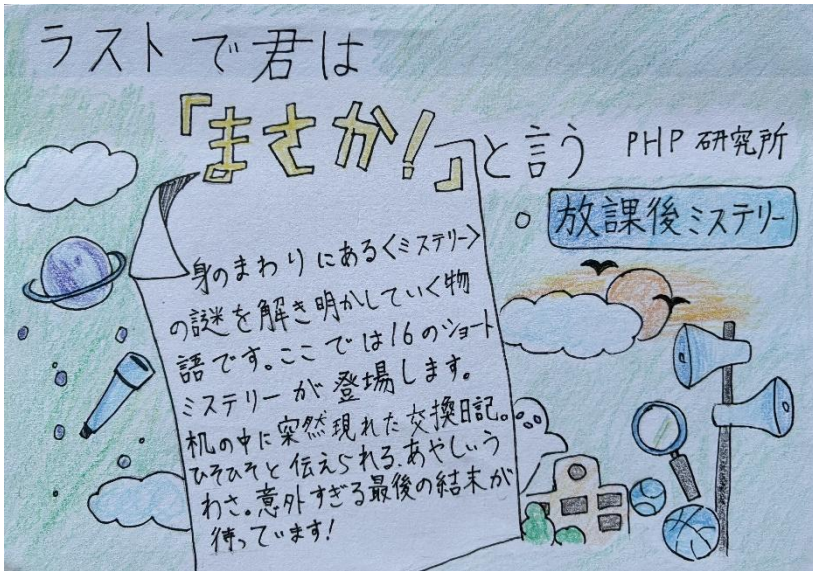 ラストで君は
「まさか!」と言う
PHP研究所
○ 放課後ミステリー
身のまわりにある<ミステリー>
の謎を解き明かしていく物
語です。ここでは16のショート
ミステリーが登場します。
机の中に突然現れた交換日記。
ひそひそと伝えられる、あやしいう
わさ。意外すぎる最後の結末が
待っています!